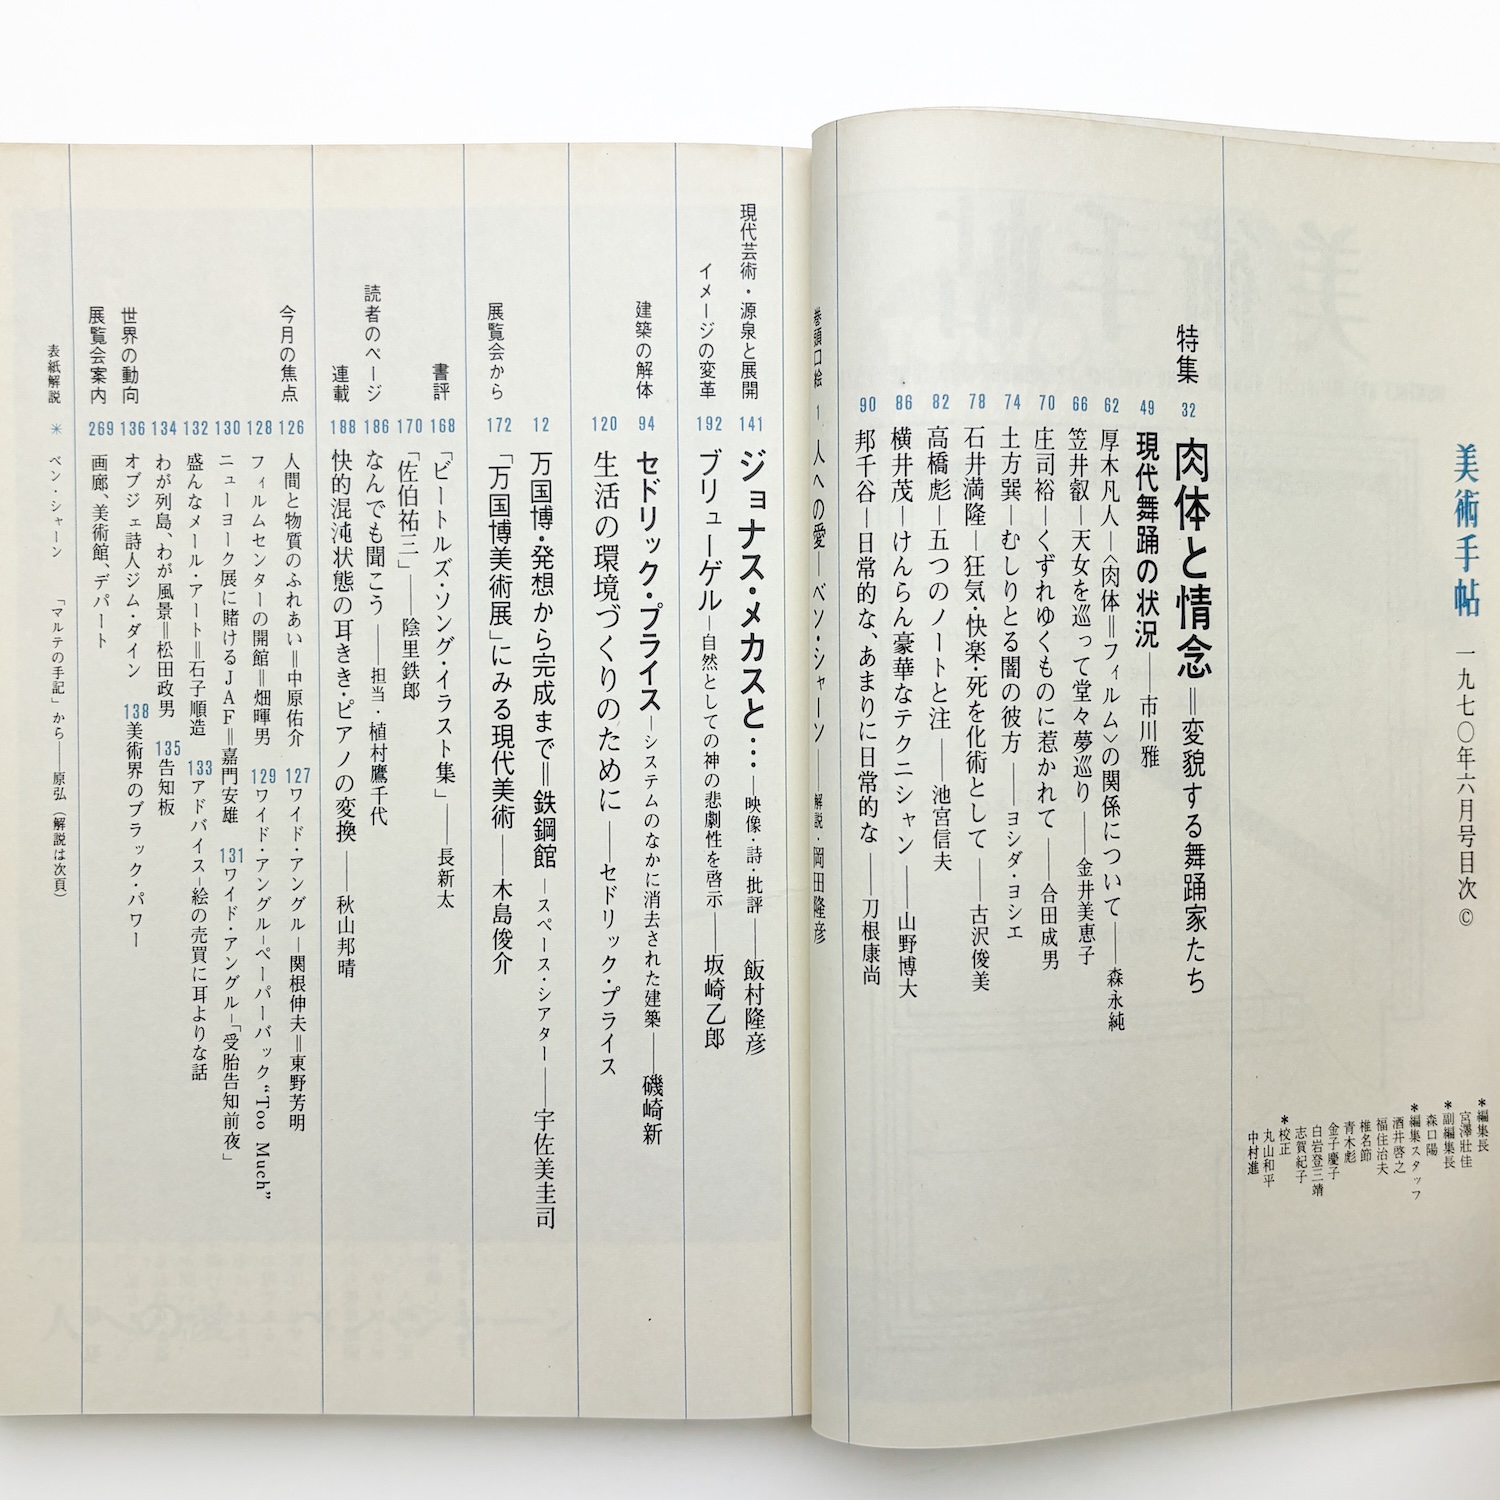 美術手帖 一九七〇年六月号目次 ©
＊編集長
宮澤壯佳
＊副編集長
森口陽
＊編集スタッフ
酒井啓之
福住治夫
椎名節
青木彪
金子慶子
白岩登三靖
志賀紀子
＊校正
丸山和平
中村進
特集 32 肉体と情念＝変貌する舞踊家たち
49 現代舞踊の状況――市川雅
62 厚木凡人―〈肉体＝フィルム〉の関係について――森永純
66 笠井叡―天女を巡って堂々夢巡り――金井美恵子
70 庄司裕―くずれゆくものに惹かれて――合田成男
74 土方巽―むしりとる闇の彼方――ヨシダ・ヨシエ
78 石井満隆―狂気・快楽・死を化術として――古沢俊美
82 高橋彪―五つのノートと注――池宮信夫
86 横井茂―けんらん豪華なテクニシャン――山野博大
90 邦千谷―日常的な、あまりに日常的な――刀根康尚
巻頭口絵 1 人への愛―ベン・シャーン――解説・岡田隆彦
現代芸術・源泉と展開 141 ジョナス・メカスと…―映像・詩・批評――飯村隆彦
イメージの変革 192 ブリューゲル―自然としての神の悲劇性を啓示――坂崎乙郎
建築の解体 94 セドリック・プライス―システムのなかに消去された建築――磯崎新
120 生活の環境づくりのために――セドリック・プライス
12 万国博・発想から完成まで＝鉄鋼館―スペース・シアター――宇佐美圭司
展覧会から 172 「万国博美術展」にみる現代美術――木島俊介
書評 168 「ビートルズ・ソング・イラスト集」――長新太
170 「佐伯祐三」――陰里鉄郎
読者のページ 186 なんでも聞こう――担当・植村鷹千代
連載 188 快的混沌状態の耳きき・ピアノの変換――秋山邦晴
今月の焦点 126 人間と物質のふれあい＝中原佑介 127 ワイド・アングル―関根伸夫＝東野芳明
128 フィルムセンターの開館＝畑暉男 129 ワイド・アングル―ペーパーバック“Too Much”
130 ニューヨーク展に賭けるJAF＝嘉門安雄 131 ワイド・アングル―「受胎告知前夜」
132 盛んなメール・アート＝石子順造 133 アドバイス―絵の売買に耳よりな話
134 わが列島、わが風景＝松田政男 135 告知板
世界の動向 136 オブジェ詩人ジム・ダイン 138 美術界のブラック・パワー
展覧会案内 269 画廊、美術館、デパート
表紙解説 ＊ ベン・シャーン 「マルテの手記」から――原弘（解説は次頁）